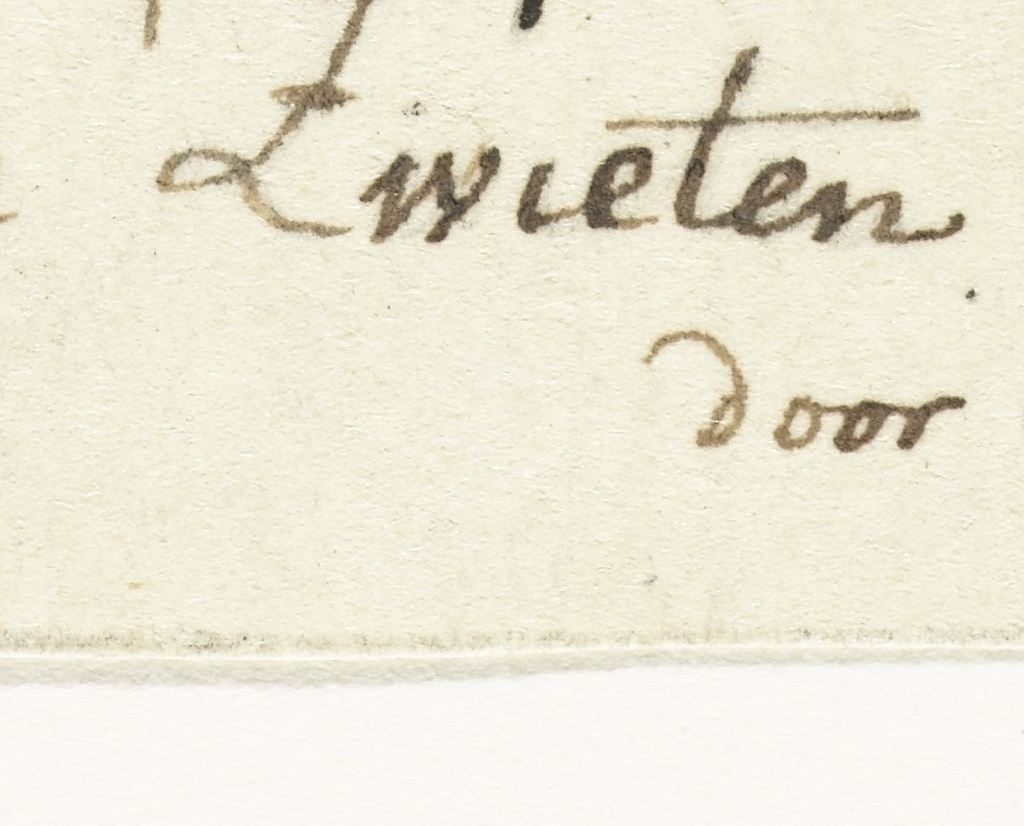 Zwieten
door